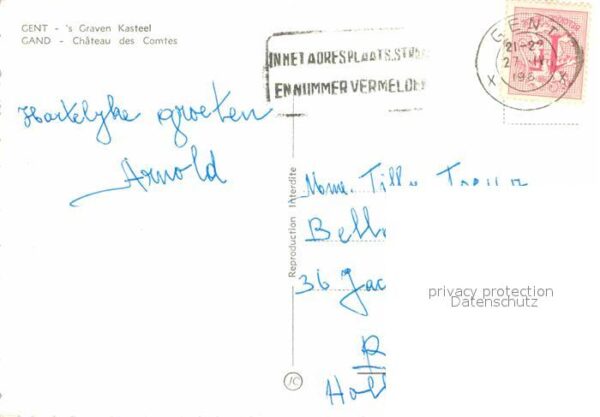 GENT - 's Graven Kasteel
GAND - Château des Comtes
IN HET ADRES PLAATS, STRAA
EN NUMMER VERMELDEN
GENT
21-2
27 II
196
X X
Hartelyke groeten
Arnold
Reproduction Interdite
Mme. Tilly
Bell
36 Jac
R
Holl
JC
privacy protection
Datenschutz